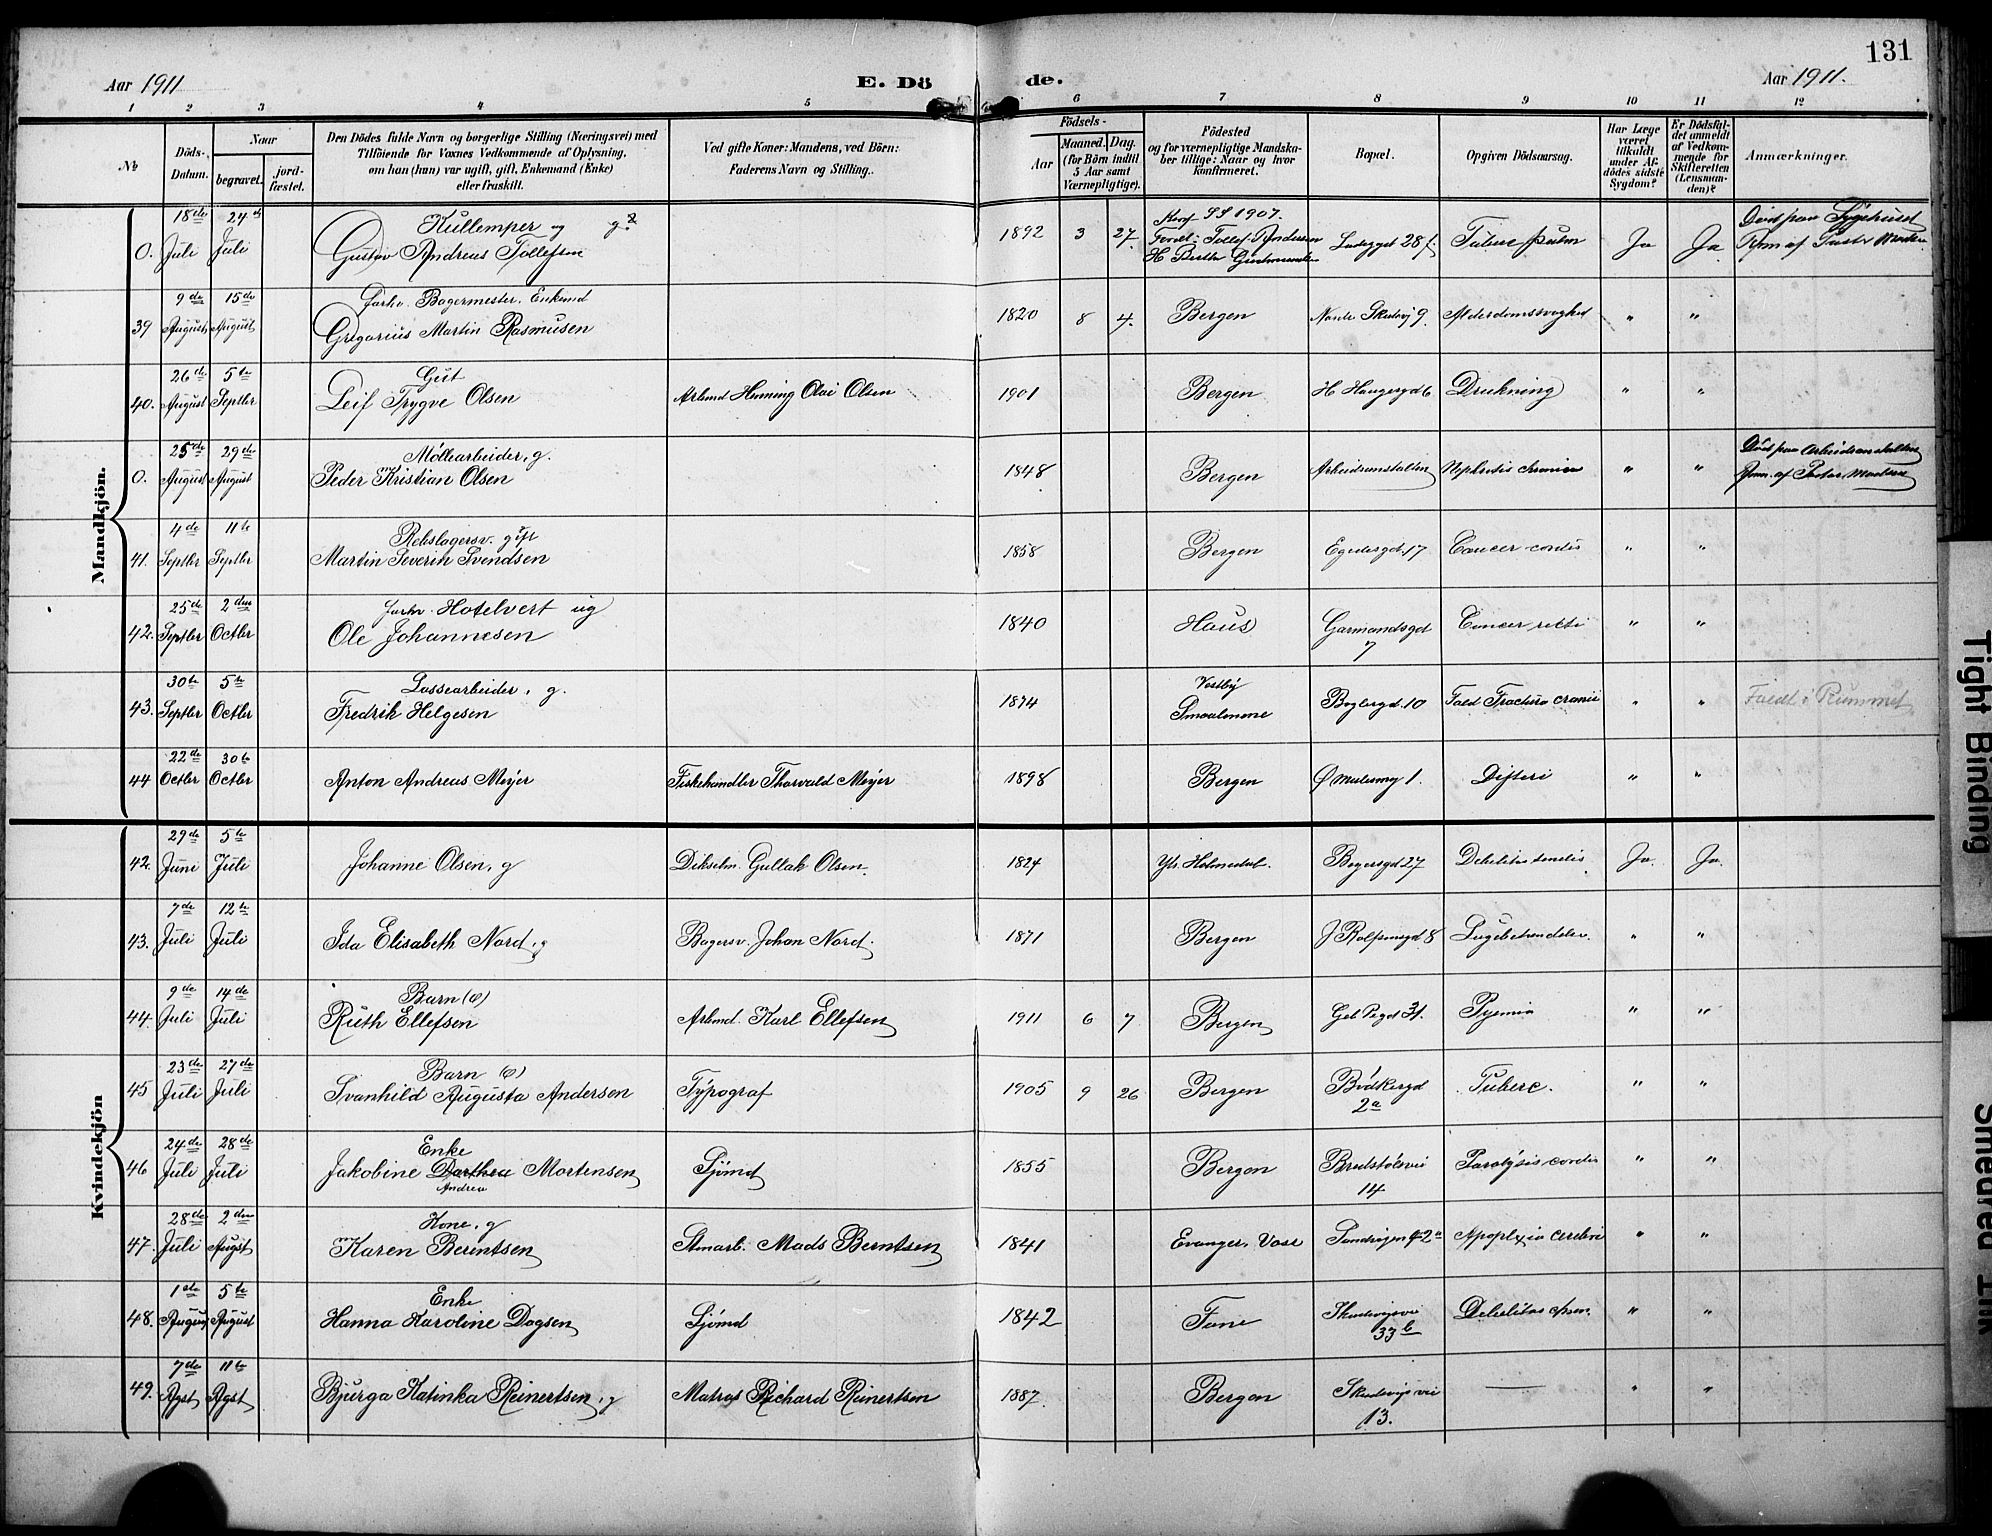 131
Aar 1911
E. Dö de.
Aar 1911.
1 2 3 4 5 6 7 8 9 10 11 12
No
Döds-Datum.
Naar
begravet.
jord-fæstet.
Den Dödes fulde Navn og borgerlige Stilling (Næringsvei) med
Tilföiende for Voxnes Vedkommende af Oplysning,
om han (hun) var ugift, gift, Enkemand (Enke)
eller fraskilt.
Ved gifte Koner: Mandens, ved Börn:
Faderens Navn og Stilling.
Födsels-
Aar
Maaned. Dag.
(for Börn indtil
5 Aar samt
Værnepligtige).
Födested
og for værnepligtige Mandska-
ber tillige: Naar og hvor
konfirmeret.
Bopæl.
Opgiven Dödsaarsag.
Har Læge
været
tilkaldt
under Af-
dödes sidste
Sygdom?
Er Dödsfal-
det anmeldt
af Vedkom-
mende for
Skifteretten
(Lensman-
den)?
Anmærkninger.
Mandkjön.
18de 24d Kullemper og g?
0. Juli Juli Gustav Andreas Tollefsen 1892 3 27 Konf SS 1907. Forél: Tollef Andersen Tuberc pulm Ja Ja Död paa Sygehuset
9de 15de Forhv. Bagermester, Enkemd
39 August August Gregorius Martin Rasmusen 1820 8 4. Bergen Nordre Skudevj 9. Alderdomssvaghed " "
26de 5te Gut
40. August Septbr Leif Trygve Olsen Arbmd Henning Olai Olsen 1901 Bergen H Haugesgd 6 Drukning " "
25de 29de Möllearbeider, g.
0. August August Peder Kristian Olsen 1848 Bergen Arbeidsanstalten Nephritis chronica " " Död paa Arbeidsanstalten
4de 11te Rebslagersv. gift
41. Septbr Septbr Martin Severin Svendsen 1858 Bergen Egedesgd. 17 Cancer cordis " "
25de 2den forhv. Hotelvert ug
42. Septbr Octbr Ole Johannesen 1840 Haus Garmandsgd 7 Cancer recti " "
30te 5te Lossearbeider, g.
43. Septbr Octbr Fredrik Helgesen 1874 Vestby Smaalenene 10 Fald Fractura cranii " " Faldt i Rummet
22de 30te
44 Octbr Octbr Anton Andreas Meyer Fiskehandler Thorvald Meyer 1898 Bergen Ø Mulesmug 1. Difteri " "
Kvindekjön
29de 5te
42. Juni Juli Johanne Olsen, g Dikselm. Gullak Olsen. 1824 Ytr. Holmedal. Bøgersgd 27 Debilitas senilis Ja. Ja.
7de 12te
43. Juli Juli Ida Elisabeth Nord, g Bagersv. Johan Nord. 1871 Bergen J Rolfsensgd 8 Lugebetændelse. " "
9de 14de Barn (e)
44. Juli Juli Ruth Ellefsen Arbmd. Karl Ellefsen 1911 6 7 Bergen 31. Pyemia " "
23de 27de Barn (e)
45 Juli Juli Svanhild Augusta Andersen Typograf 1905 9 26 Bergen Bödkergd 2a Tuberc. " "
24de 28de Enke
46 Juli Juli Jakobine Dorthea Mortensen Sjömd 1855 Bergen Bredstölsvei 14 Paralysis cordis " "
Andrea
28de 2den Kone, g
47. Juli Augst Karen Berentsen Stmarb. Mads Berntsen 1841 Evanger, Voss Sandvigen 42a Apoplexia cerebri " "
1ste 5te Enke
48. August August Hanna Karoline Dagsen Sjömd 1842 Fane Skudevigsvei 33b Debilitas " "
7de 11te
49. Agst Agst Bjurga Katinka Reinertsen, g Matros Richard Reinertsen 1887. Bergen Skudevigsvei 13. — " "
Tight Binding
Smeared Ink